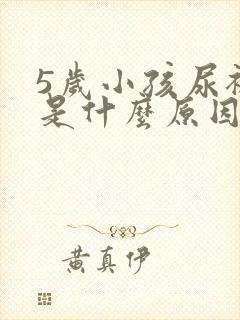 5歲小孩尿
是什麼原因
黃真伊